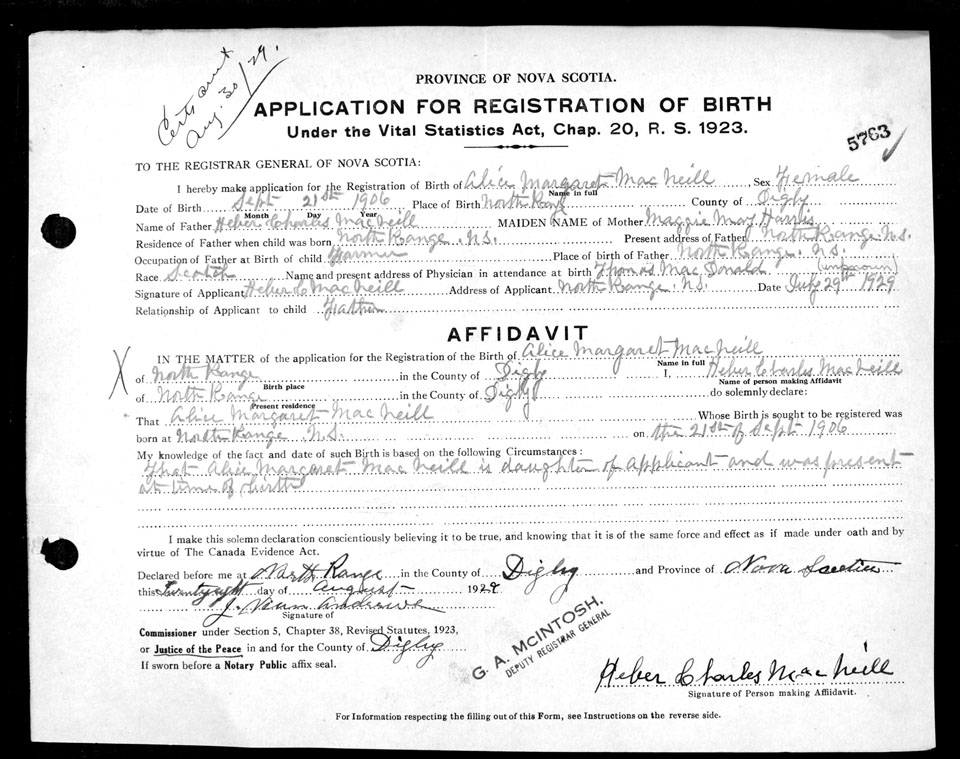 Certs sent
Aug. 30/29.
PROVINCE OF NOVA SCOTIA.
APPLICATION FOR REGISTRATION OF BIRTH
Under the Vital Statistics Act, Chap. 20, R. S. 1923.
5763
TO THE REGISTRAR GENERAL OF NOVA SCOTIA:
I hereby make application for the Registration of Birth of Alice Margaret MacNeill Sex Female
Name in full
Date of Birth Sept 21st 1906 Place of Birth North Range County of Digby
Month Day Year
Name of Father Heber Charles MacNeill MAIDEN NAME of Mother Maggie May Harris
Residence of Father when child was born North Range N.S. Present address of Father North Range N.S.
Occupation of Father at Birth of child Farmer Place of birth of Father North Range, N.S.
Race Scotch Name and present address of Physician in attendance at birth Thomas MacDonald (unknown)
Signature of Applicant Heber C MacNeill Address of Applicant North Range N.S. Date July 29th 1929
Relationship of Applicant to child Father
AFFIDAVIT
X
IN THE MATTER of the application for the Registration of the Birth of Alice Margaret MacNeill
Name in full
of North Range in the County of Digby I, Heber Charles MacNeill
Birth place Name of person making Affidavit
of North Range in the County of Digby do solemnly declare:
Present residence
That Alice Margaret MacNeill Whose Birth is sought to be registered was
born at North Range N.S. on the 21st of Sept 1906
My knowledge of the fact and date of such Birth is based on the following Circumstances:
That Alice Margaret MacNeill is daughter of Applicant and was present
at time of birth
I make this solemn declaration conscientiously believing it to be true, and knowing that it is of the same force and effect as if made under oath and by
virtue of The Canada Evidence Act.
Declared before me at North Range in the County of Digby and Province of Nova Scotia
this Twenty eight day of August 1929
J. Andrews
Signature of
Commissioner under Section 5, Chapter 38, Revised Statutes, 1923,
or Justice of the Peace in and for the County of Digby
If sworn before a Notary Public affix seal.
G. A. McINTOSH,
DEPUTY REGISTRAR GENERAL
Heber Charles MacNeill
Signature of Person making Affidavit.
For Information respecting the filling out of this Form, see Instructions on the reverse side.